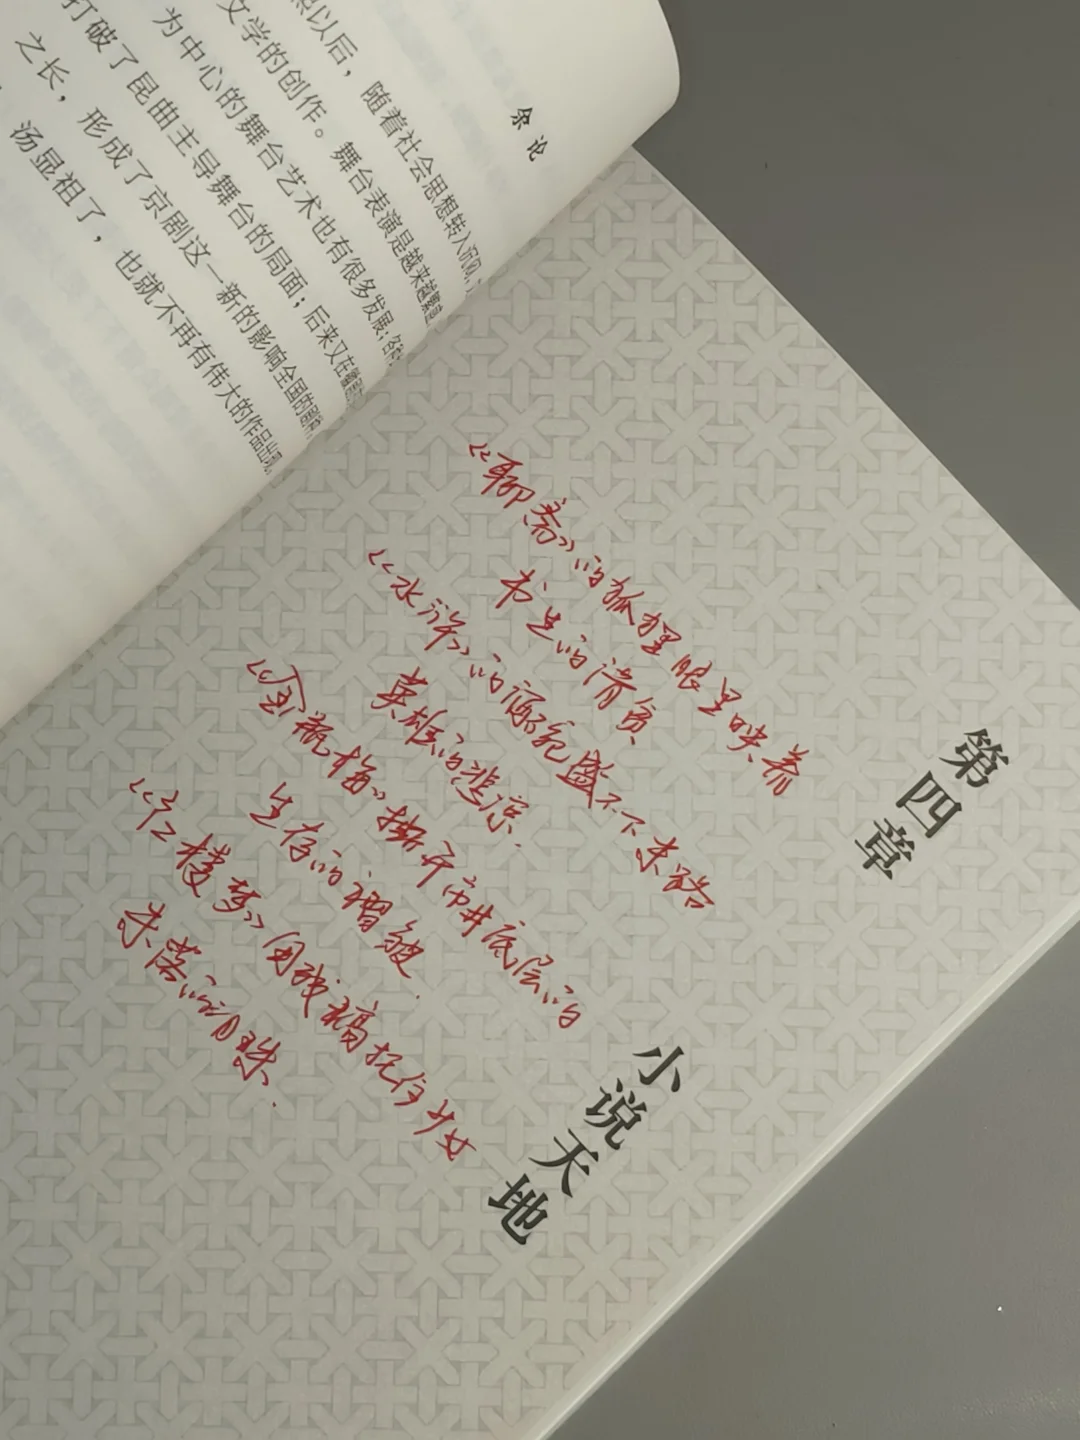 余论
熙以后，随着社会思想转入沉
文学的创作。舞台表演是越来越
为中心的舞台艺术也有很多发展；各
打破了昆曲主导舞台的局面；后来又在
之长，形成了京剧这一新的影响全国的剧
汤显祖了，也就不再有伟大的作品出现
《聊斋》的狐狸眼里映着
书生的清贫
《水浒》的酒碗盛不下末路
英雄的悲凉.
《金瓶梅》撕开市井底层的
生存的褶皱.
《红楼梦》用残稿托住少女
未落的泪珠.
第四章
小说天地